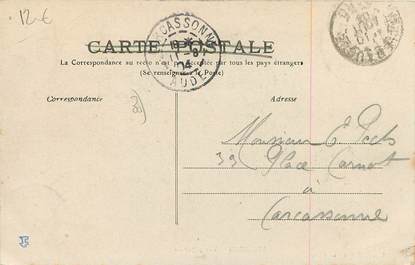 12 €
CARCASSONNE
CARTE POSTALE
11 -8
04
AUDE
La Correspondance au recto n'est pas acceptée par tous les pays étrangers
(Se renseigner à la Poste)
Correspondance
Adresse
Monsieur E
39 Place Carnot
à
Carcassonne